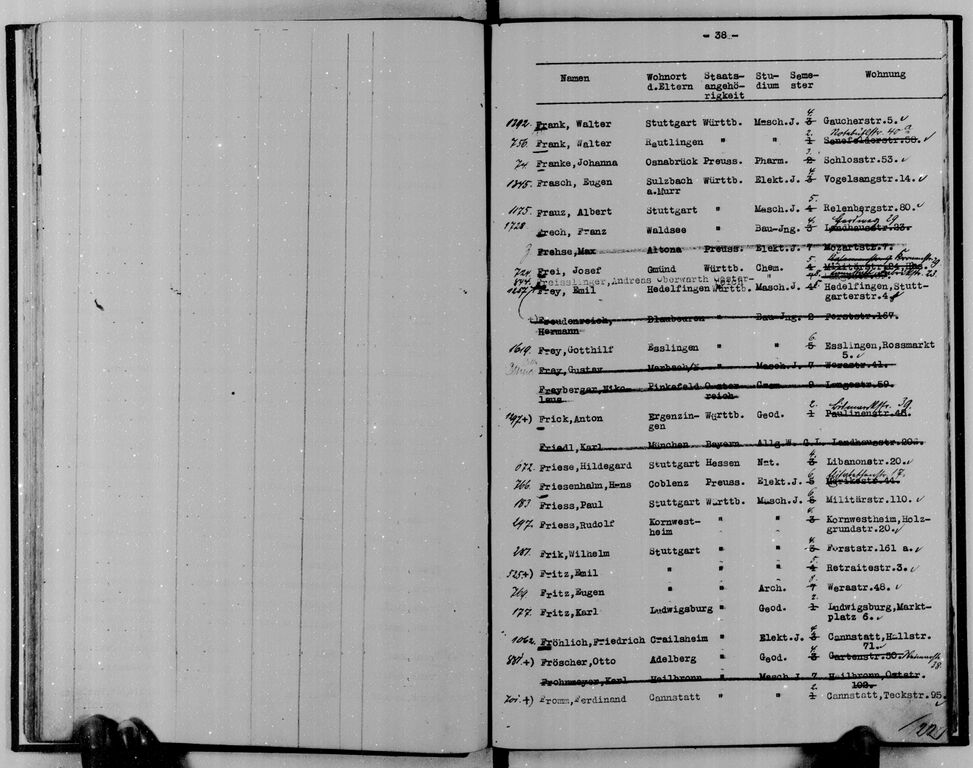 - 38 -
Namen Wohnort Staats- Stu- Seme- Wohnung
d.Eltern angehö- dium ster
rigkeit
4.
1292. Frank, Walter Stuttgart Württb. Masch.J. 3 Gaucherstr.5.
2.
756. Frank, Walter Reutlingen " " 1 Senefelderstr.58.
3.
74. Franke,Johanna Osnabrück Preuss. Pharm. 2 Schlosstr.53.
4.
1345. Frasch, Eugen Sulzbach Württb. Elekt.J. 3 Vogelsangstr.14.
a.Murr
5.
1175. Frauz, Albert Stuttgart " Masch.J. 4 Relenbergstr.80.
4.
1728. Frech, Franz Waldsee " Bau-Jng. 3 Landhausstr.23.
Frehse,Max Altona Preuss. Elekt.J. 7 Mozartstr.7.
5.
724. Frei, Josef Gmünd Württb. Chem. 4
844. Freisslinger,Andreas Oberwarth Oester-
reich
Frey, Emil Hedelfingen Württb. Masch.J. 4 Hedelfingen,Stutt-
garterstr.4
+) Freudenreich, Blaubeuren " Bau-Jng. 2 Forststr.167.
Hermann
6.
1619. Frey,Gotthilf Esslingen " " 5 Esslingen,Rossmarkt
5.
Frey,Gustav Marbach/N " Masch.J. 7 Werastr.41.
Freyberger,Niko- Pinkafeld Oester- Chem. 9 Langestr.59.
laus reich
2.
+) Frick,Anton Ergenzin- Württb. Geod. 1 Paulinenstr.48.
gen
Friedl,Karl München Bayern Allg.W. Landhausstr.
4.
672. Friese,Hildegard Stuttgart Hessen Nat. 3 Libanonstr.20.
6.
766. Friesenhahn,Hans Coblenz Preuss. Elekt.J. 5 Mörikestr.44.
6
183 Friess,Paul Stuttgart Württb. Masch.J. 5 Militärstr.110.
4.
297. Friess,Rudolf Kornwest- " " 3 Kornwestheim,Holz-
heim grundstr.20.
4.
287. Frik,Wilhelm Stuttgart " " 3 Forststr.161 a.
5.
525+) Fritz,Emil " " " 4 Retraitestr.3.
8.
769. Fritz,Eugen " " Arch. 7 Werastr.48.
2.
177. Fritz,Karl Ludwigsburg " Geod. 1 Ludwigsburg,Markt-
platz 6.
4
1062. Fröhlich,Friedrich Crailsheim " Elekt.J. 3 Cannstatt,Hallstr.
71.
4.
881.+) Fröscher,Otto Adelberg " Geod. 3 Gartenstr.30.
38.
Frohnmeyer,Karl Heilbronn " Masch.J. 7 Heilbronn,Oststr.
102.
2.
201.+) Fromm,Ferdinand Cannstatt " " 1 Cannstatt,Teckstr.95.
22.